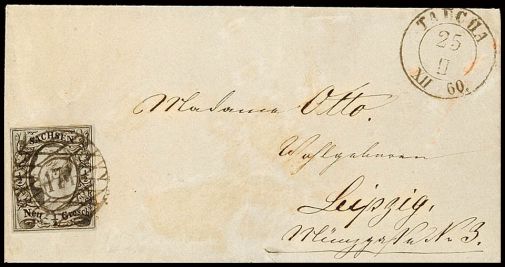 TAUCHA
25
II
XII 60.
Madame Otto.
Wohlgeboren
Leipzig,
Münzgasse No 3.
SACHSEN
Neu- Grosch.